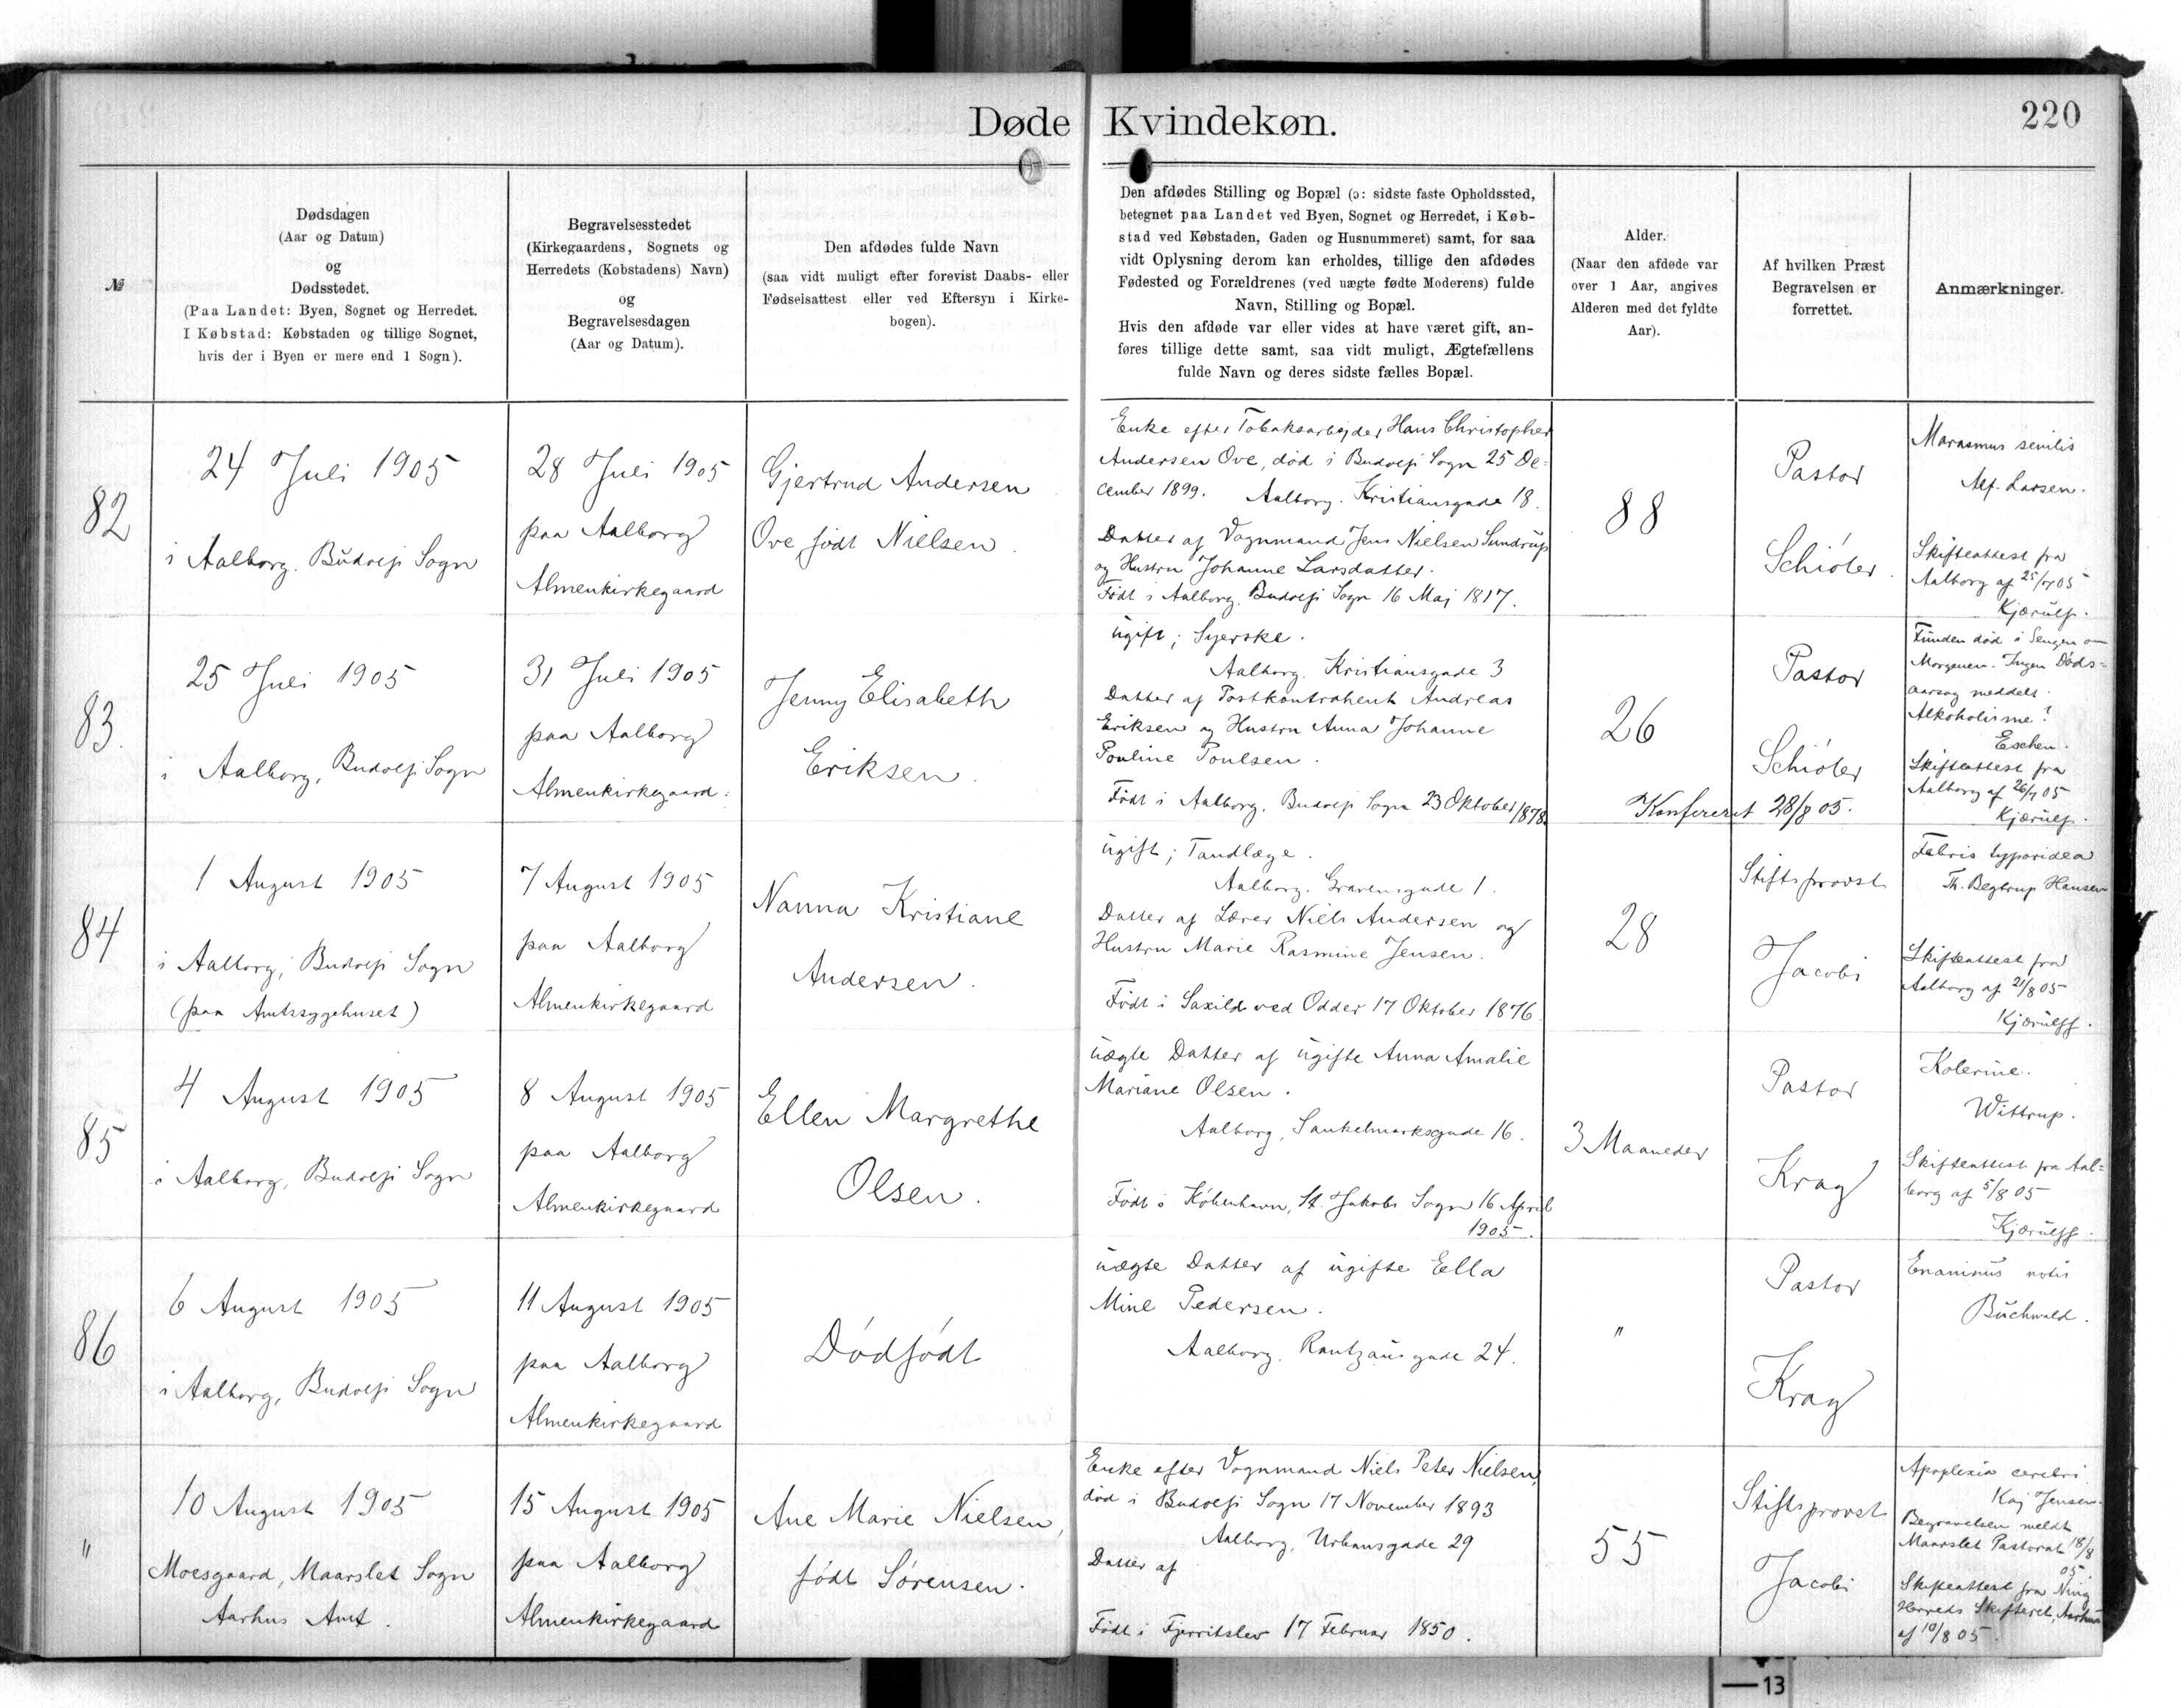 Døde Kvindekøn.
220
№
Dødsdagen
(Aar og Datum)
og
Dødsstedet.
(Paa Landet: Byen, Sognet og Herredet.
I Købstad: Købstaden og tillige Sognet,
hvis der i Byen er mere end 1 Sogn).
Begravelsesstedet
(Kirkegaardens, Sognets og
Herredets (Købstadens) Navn)
og
Begravelsesdagen
(Aar og Datum).
Den afdødes fulde Navn
(saa vidt muligt efter forevist Daabs- eller
Fødselsattest eller ved Eftersyn i Kirke-
bogen).
Den afdødes Stilling og Bopæl (ɔ: sidste faste Opholdssted,
betegnet paa Landet ved Byen, Sognet og Herredet, i Køb-
stad ved Købstaden, Gaden og Husnummeret) samt, for saa
vidt Oplysning derom kan erholdes, tillige den afdødes
Fødested og Forældrenes (ved uægte fødte Moderens) fulde
Navn, Stilling og Bopæl.
Hvis den afdøde var eller vides at have været gift, an-
føres tillige dette samt, saa vidt muligt, Ægtefællens
fulde Navn og deres sidste fælles Bopæl.
Alder.
(Naar den afdøde var
over 1 Aar, angives
Alderen med det fyldte
Aar).
Af hvilken Præst
Begravelsen er
forrettet.
Anmærkninger.
82
24 Juli 1905
i Aalborg. Budolfi Sogn
28 Juli 1905
paa Aalborg
Almenkirkegaard
Gjertrud Andersen
Ove født Nielsen.
Enke efter Tobaksarbejder Hans Christopher
Andersen Ove, død i Budolfi Sogn 25 De-
cember 1899. Aalborg. Kristiansgade 18.
Datter af Vognmand Jens Nielsen Sundrup
og Hustru Johanne Larsdatter.
Født i Aalborg. Budolfi Sogn 16 Maj 1817.
88
Pastor
Schiøler.
Marasmus senilis
Alf. Larsen.
Skifteattest fra
Aalborg af 25/7 05
Kjærulf.
83.
25 Juli 1905
i Aalborg, Budolfi Sogn
31 Juli 1905
paa Aalborg
Almenkirkegaard.
Jenny Elisabeth
Eriksen.
ugift; Syerske.
Aalborg. Kristiansgade 3
Datter af Postkontrahent Andreas
Eriksen og Hustru Anna Johanne
Pouline Poulsen.
Født i Aalborg. Budolfi Sogn 23 Oktober 1878.
26
Pastor
Schiøler
Konfereret 28/8 05.
Funden død i Sengen om
Morgenen. Ingen Døds-
aarsag meddelt.
Alkoholisme?
Eschen.
Skifteattest fra
Aalborg af 26/7 05
Kjærulf.
84
1 August 1905
i Aalborg, Budolfi Sogn
(paa Amtssygehuset)
7 August 1905
paa Aalborg
Almenkirkegaard
Nanna Kristiane
Andersen.
ugift; Tandlæge.
Aalborg. Gravensgade 1.
Datter af Lærer Niels Andersen og
Hustru Marie Rasmine Jensen.
Født i Saxild ved Odder 17 Oktober 1876.
28
Stiftsprovst
Jacobi
Febris typoidea
Th. Begtrup Hansen
Skifteattest fra
Aalborg af 21/8 05
Kjærulff.
85
4 August 1905
i Aalborg, Budolfi Sogn
8 August 1905
paa Aalborg
Almenkirkegaard
Ellen Margrethe
Olsen.
uægte Datter af ugifte Anna Amalie
Mariane Olsen.
Aalborg, Sankelmarksgade 16.
Født i København, St. Jakobs Sogn 16 April
1905.
3 Maaneder
Pastor
Krag
Kolerine.
Wittrup.
Skifteattest fra Aal-
borg af 5/8 05
Kjærulff.
86
6 August 1905
i Aalborg, Budolfi Sogn
11 August 1905
paa Aalborg
Almenkirkegaard
Dødfødt
uægte Datter af ugifte Ella
Mine Pedersen.
Aalborg. Rantzausgade 24.
"
Pastor
Krag
Buchwald.
"
10 August 1905
Moesgaard, Maarslet Sogn
Aarhus Amt.
15 August 1905
paa Aalborg
Almenkirkegaard
Ane Marie Nielsen,
født Sørensen.
Enke efter Vognmand Niels Peter Nielsen,
død i Budolfi Sogn 17 November 1893
Aalborg, Urbansgade 29
Datter af
Født i Fjerritslev 17 Februar 1850.
55
Stiftsprovst
Jacobi
Apoplexia cerebri.
Kaj Jensen.
Begravelsen meldt
Maarslet Pastorat 18/8
05.
Skifteattest fra Ning
Herreds Skifteret, Aarhus
af 10/8 05.
13